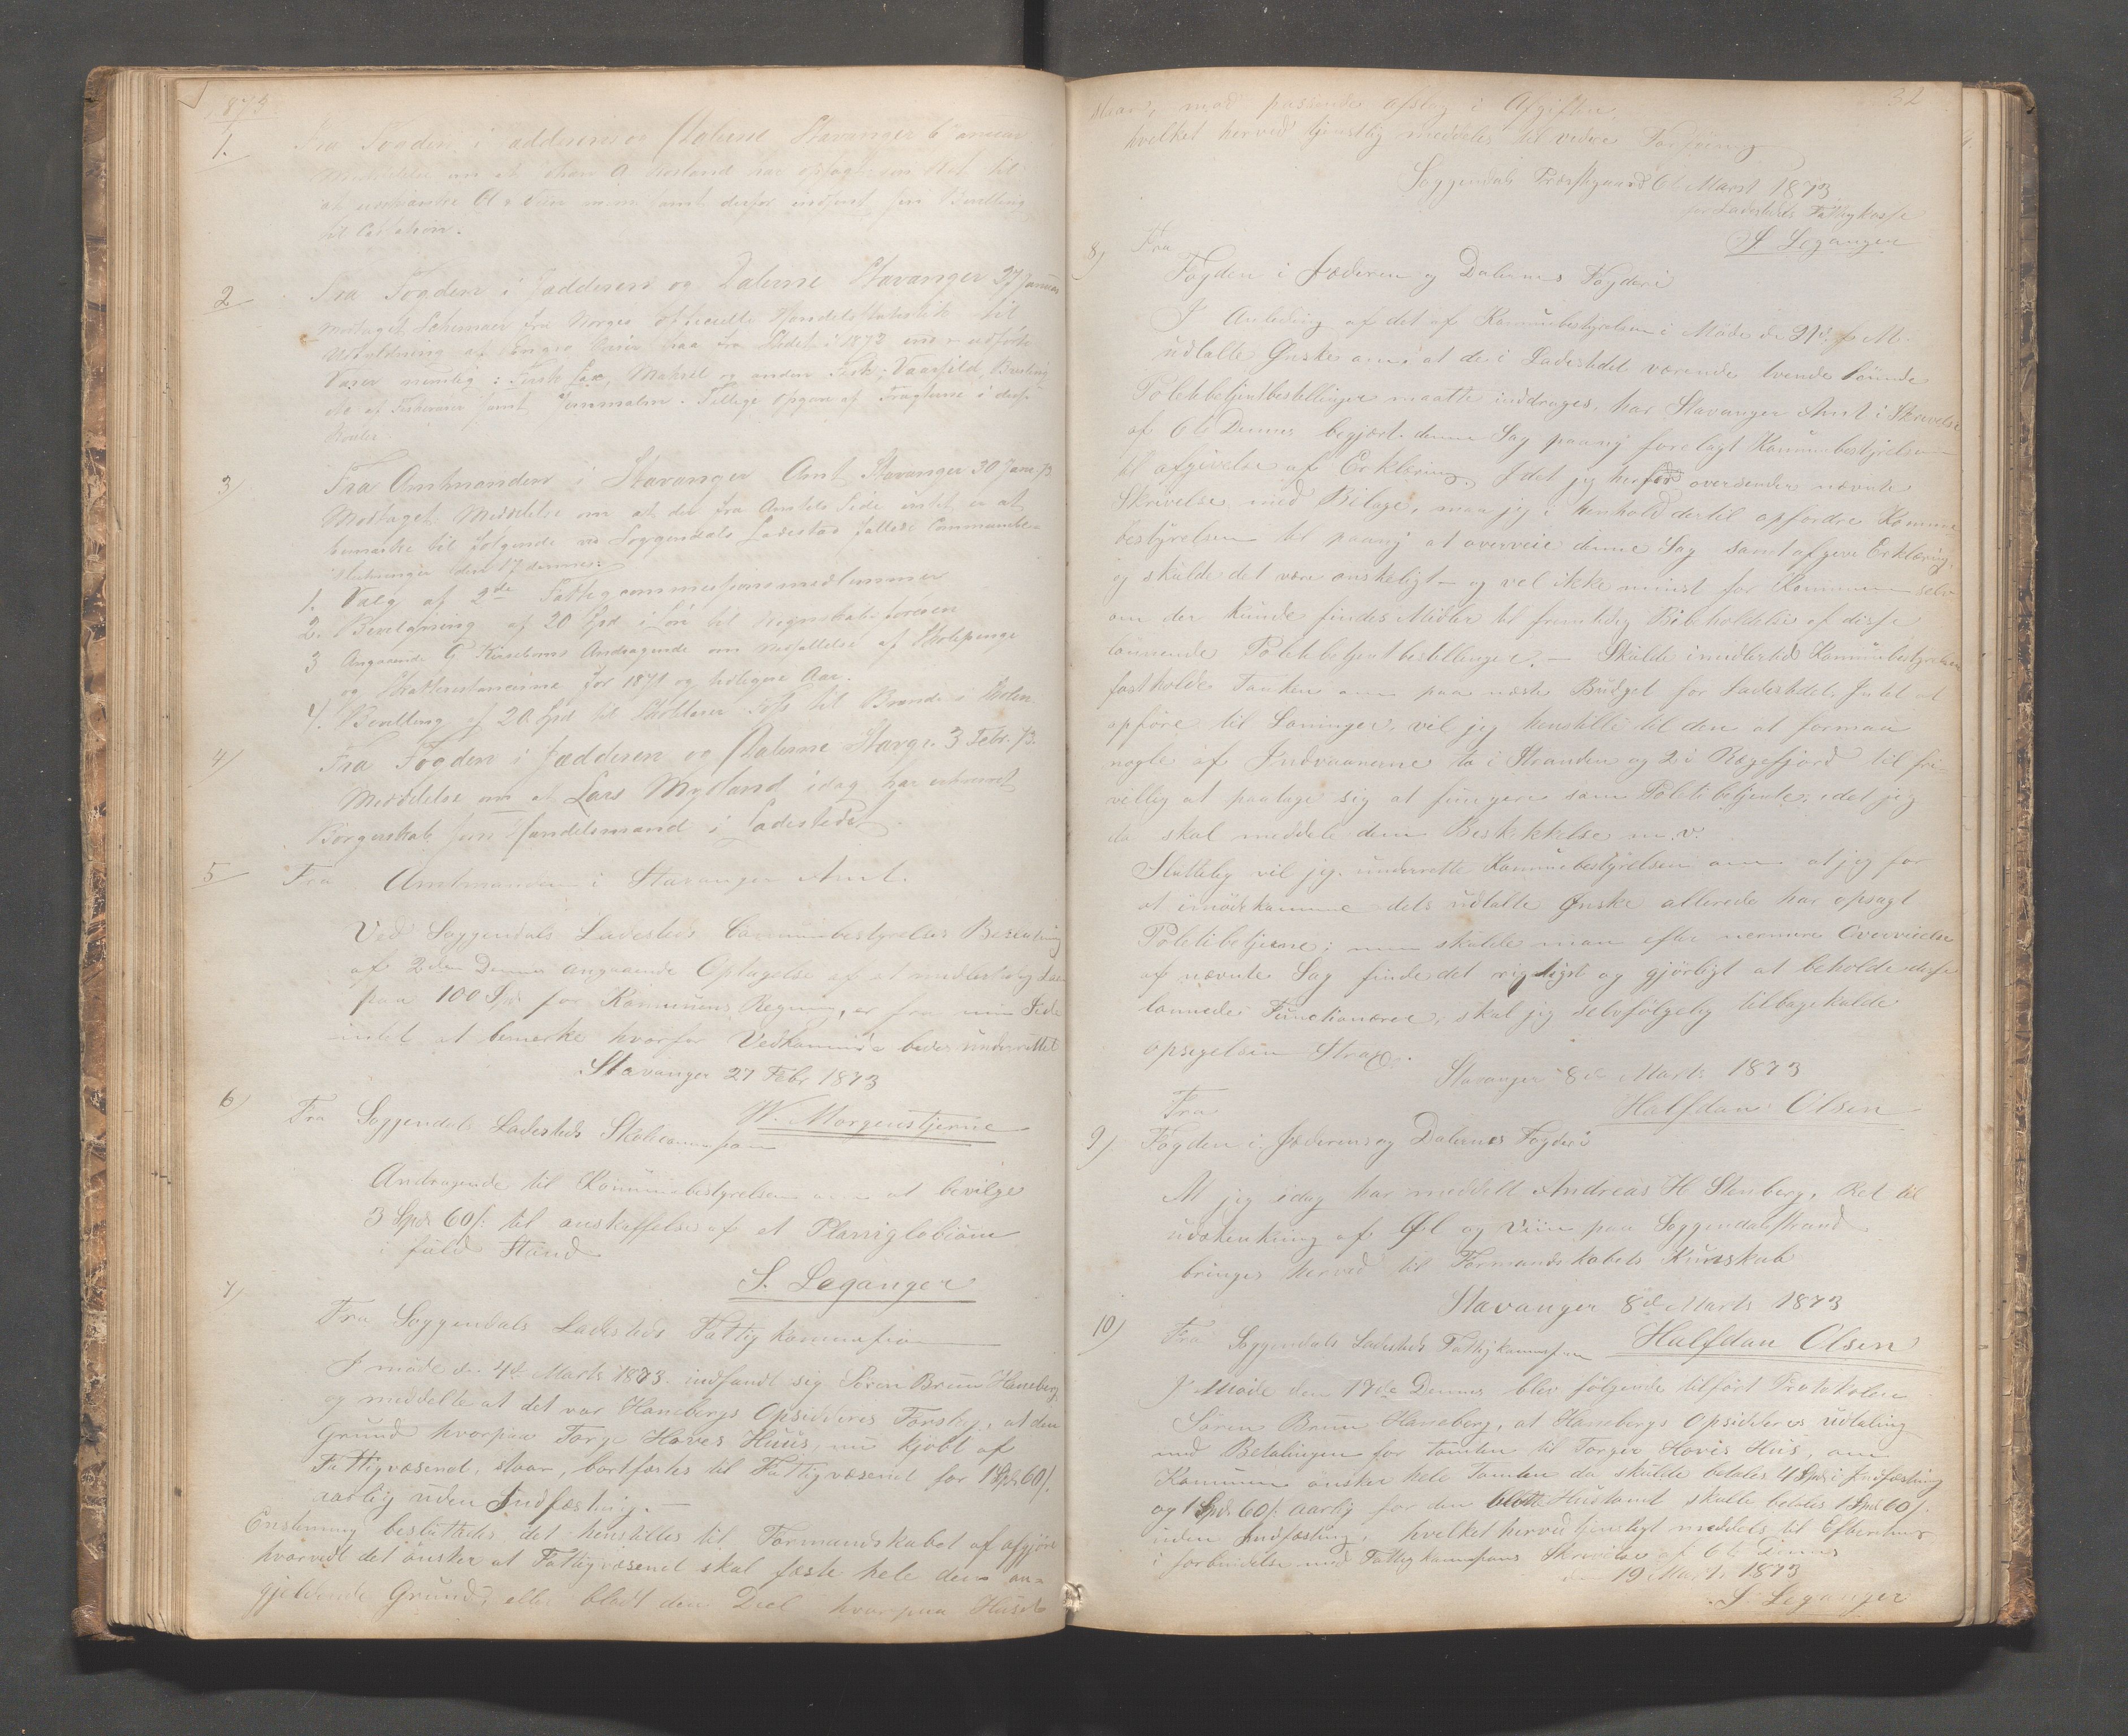 1873
1. Fra Fogden i Jædderen og Dalerne Stavanger 6 Januar
Meddelelse om at Johan A. har opsagt sin Ret til
at udskjænke Øl & Viin m.m. samt derfor indsent sin Bevilling
til Cassation.
2 Fra Fogden i Jædderen og Dalerne Stavanger 27 Januar
Modtaget Schemaer fra Norges officielle Handelsstatistik til
Udfyldning af Priser paa fra Stedet i 1872 ind & udførte
Varer nemlig: Fersk Lax, Makrel og anden Fisk, Vaarsild, Brisling
samt Jernmalm. Tillige Opgave af Fragterne i disse
3) Fra Amtmanden i Stavanger Amt Stavanger 30 Janr. 73
Modtaget Meddelelse om at der fra Amtets Side intet er at
bemærke til følgende ved Soggendals Ladested fattede Commune-
slutninger den 17 dennes:
1. Valg af 2de Fattigcommissionsmedlemmer
2. Bevilgning af 20 Spd i Løn til Regnskabsføreren
3 Angaaende C Andragende om nedsættelse af Skolepenge
og Skatterestancerne for 1871 og tidligere Aar.
4. Bevilling af 20 Spd til Skolelærer Foss til Brænde i Skolen.
4) Fra Fogden i Jædderen og Dalerne Stavgr. 3 Febr. 73.
Meddelelse om at Lars Mydland idag har erhvervet
Borgerskab som Handelsmand i Ladestedet.
5 Fra Amtmanden i Stavanger Amt.
Ved Soggendals Ladesteds Communebestyrelses Beslutning
af 2den Dennes angaaende Optagelse af et midlertidig Laan
paa 100 Spd for Kommunens Regning, er fra min Side
intet at bemerke hvorfor Vedkommende bedes underrettet
Stavanger 27 Febr 1873
W. Morgenstjerne
6) Fra Soggendals Ladesteds Skolekommission
Andragende til Kommunebestyrelsen om at bevilge
3 Spd. 60 s. til anskaffelse af et Planiglobium
i fuld Stand
S. Leganger
7) Fra Soggendals Ladesteds Fattigkommission
I møde den 4de Marts 1873 indfandt sig Søren Bruun Haneberg,
og meddelte at det var Hanebergs Opsidderes Forslag, at den
Grund hvorpaa Torge Hoves Huus, nu kjøbt af
Fattigvæsenet, staar, bortfæstes til Fattigvæsenet for 1 Spd 60 s.
aarlig uden Indfæstning. —
Enstemmig besluttedes det henstilles til Formandskabet at afgjøre
hvorvidt det ønsker at Fattigvæsenet skal fæste hele den an-
gjeldende Grund, eller blodt den Deel hvorpaa Huset
32
staar, mod passende afslag i Afgiften,
hvilket herved tjenstlig meddeles til videre Forføining
Soggendals Præstegaard 6te Marst 1873
for Ladestedets Fattigkasse
S Leganger
8) Fra
Fogden i Jæderen og Dalernes Fogderi
I Anledning af det af Kommunebestyrelsen i Møde de 27d. f. M.
udtalte Ønske om, at de i Ladestedet værende tvende lønnede
Politibetjentbestillinger maatte inddrages, har Stavanger Amt i Skrivelse
af 6te Dennes begjært denne Sag paany forelagt Kommunebestyrelsen
til afgivelse af Erklæring. Idet jeg herved oversender nævnte
Skrivelse med Bilage, maa jeg i henhold dertil opfordre Kommune-
bestyrelsen til paany at overveie denne Sag samt afgive Erklæring,
og skulde det være ønskeligt — og vel ikke minst for Kommunen selv
om der kunde findes Midler til fremtidig Bibeholdelse af disse
lønnende Politibetjentbestillinger. — Skulde imidlertid Kommunebestyrelsen
fastholde Tanken om paa næste Budget for Ladestedet Intet at
opføre til Lønninger, vil jeg henstille til den at formaa
nogle af Indvaanerne to i Stranden og 2 i Rægefjord til fri-
villig at paatage sig at fungere som Politibetjente, idet jeg
da skal meddele dem Beskikkelse m.v.
Sluttelig vil jeg underrette Kommunebestyrelsen om at jeg for
at imødekomme dets udtalte Ønske allerede har opsagt
Politibetjerne; men skulde man efter nermere Overveielse
af nævnte Sag finde det rigtigst og gjørligt at beholde disse
lønnede Functionærer, skal jeg selvfølgelig tilbagekalde
opsigelsen Strax.
Stavanger 8de Marts 1873
Halfdan Olsen
9) Fra
Fogden i Jæderens og Dalernes Fogderi
At jeg idag har meddelt Andreas H Stenberg, Ret til
udskenkning af Øl og Viin paa Soggendalsstrand
bringes herved til Formandskabets Kundskab
Stavanger 8de Marts 1873
Halfdan Olsen
10) Fra Soggendals Ladesteds Fattigkommission
I Møde den 17de Dennes blev følgende tilført Protokolen
Søren Bruun Haneberg, at Hanebergs Opsidderes udtaling
med Betalingen for tomten til Torger Hoves Hus, om
Kommunen ønsker hele Tomten da skulde betales 4 Spd. i Indfæstning
og 1 Spd. 60 s. aarlig for den blotte Hustomt skulle betales 1 Spd 60 s.
uden Indfæstning, hvilket herved tjenstligt meddels til Efterretning
i forbindelse med Fattigkommissions Skrivelse af 6te Dennes
den 19 Marts 1873
S Leganger